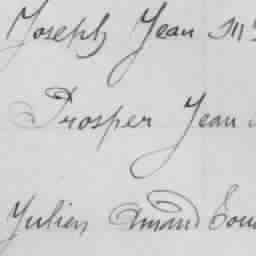 Joseph Jean M
Prosper Jean
Julien Amand Lou